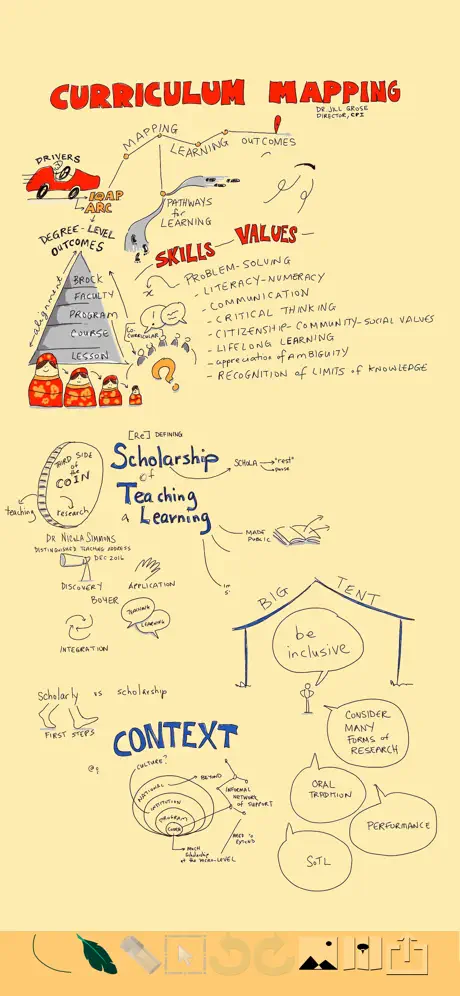 CURRICULUM MAPPING
DR. JILL GROSE
DIRECTOR, CPI
MAPPING
LEARNING
OUTCOMES
DRIVERS
IQAP
ARC
PATHWAYS
for
LEARNING
DEGREE-LEVEL
OUTCOMES
SKILLS VALUES
alignment
BROCK
FACULTY
PROGRAM
COURSE
LESSON
CO-
CURRICULAR
?
PROBLEM-SOLVING
- LITERACY-NUMERACY
- COMMUNICATION
- CRITICAL THINKING
- CITIZENSHIP-COMMUNITY-SOCIAL VALUES
- LIFELONG LEARNING
- appreciation of AMBIGUITY
- RECOGNITION of LIMITS of KNOWLEDGE
[Re] DEFINING
Scholarship
of
Teaching
& Learning
SCHOLA
"rest"
THIRD SIDE
of
the
COIN
teaching
research
MADE
PUBLIC
DR NICOLA SIMMONS
DISTINGUISHED TEACHING ADDRESS
DEC 2016
DISCOVERY
APPLICATION
BOYER
TEACHING
LEARNING
INTEGRATION
BIG TENT
be
inclusive
CONSIDER
MANY
FORMS of
RESEARCH
ORAL
TRADITION
PERFORMANCE
SoTL
Scholarly vs scholarship
FIRST STEPS
CONTEXT
CULTURE?
NATIONAL
INSTITUTION
PROGRAM
BEYOND
INFORMAL
NETWORK
of SUPPORT
NEED to
EXTEND
MUCH
Scholarship
at the MICRO-LEVEL